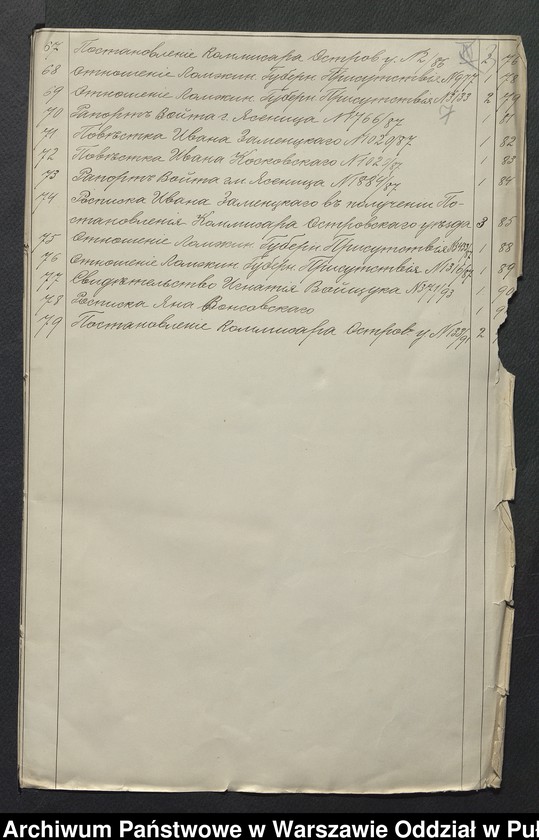 67 Постановленіе Коммисара Остров у. №2/86 2 76
68 Отношеніе Ломжин. Губерн Присутствія №977 1 78
69 Отношеніе Ломжин. Губерн Присутствія 2 79
70 Рапортъ Войта г. Ясеница №1766/87 1 81
71 Повѣстка Ивана Заменцкаго №1020/87 1 82
72 Повѣстка Ивана Косковскаго №1021/87 1 83
73 Рапортъ Войта гм Ясеница №1884/87 1 84
74 Росписка Ивана Заменцкаго въ полученіи По-
становленія Коммисара Островскаго уѣзда 3 85
75 Отношеніе Ломжин. Губерн Присутствія 1 88
76 Отношеніе Ломжин. Губерн Присутствія 1 89
77 Свидѣтельство Игнатія Войщука №371/93 1 90
78 Росписка Яна Вонсовскаго 1
79 Постановленіе Коммисара Остров у 2
Archiwum Państwowe w Warszawie Oddział w Puł